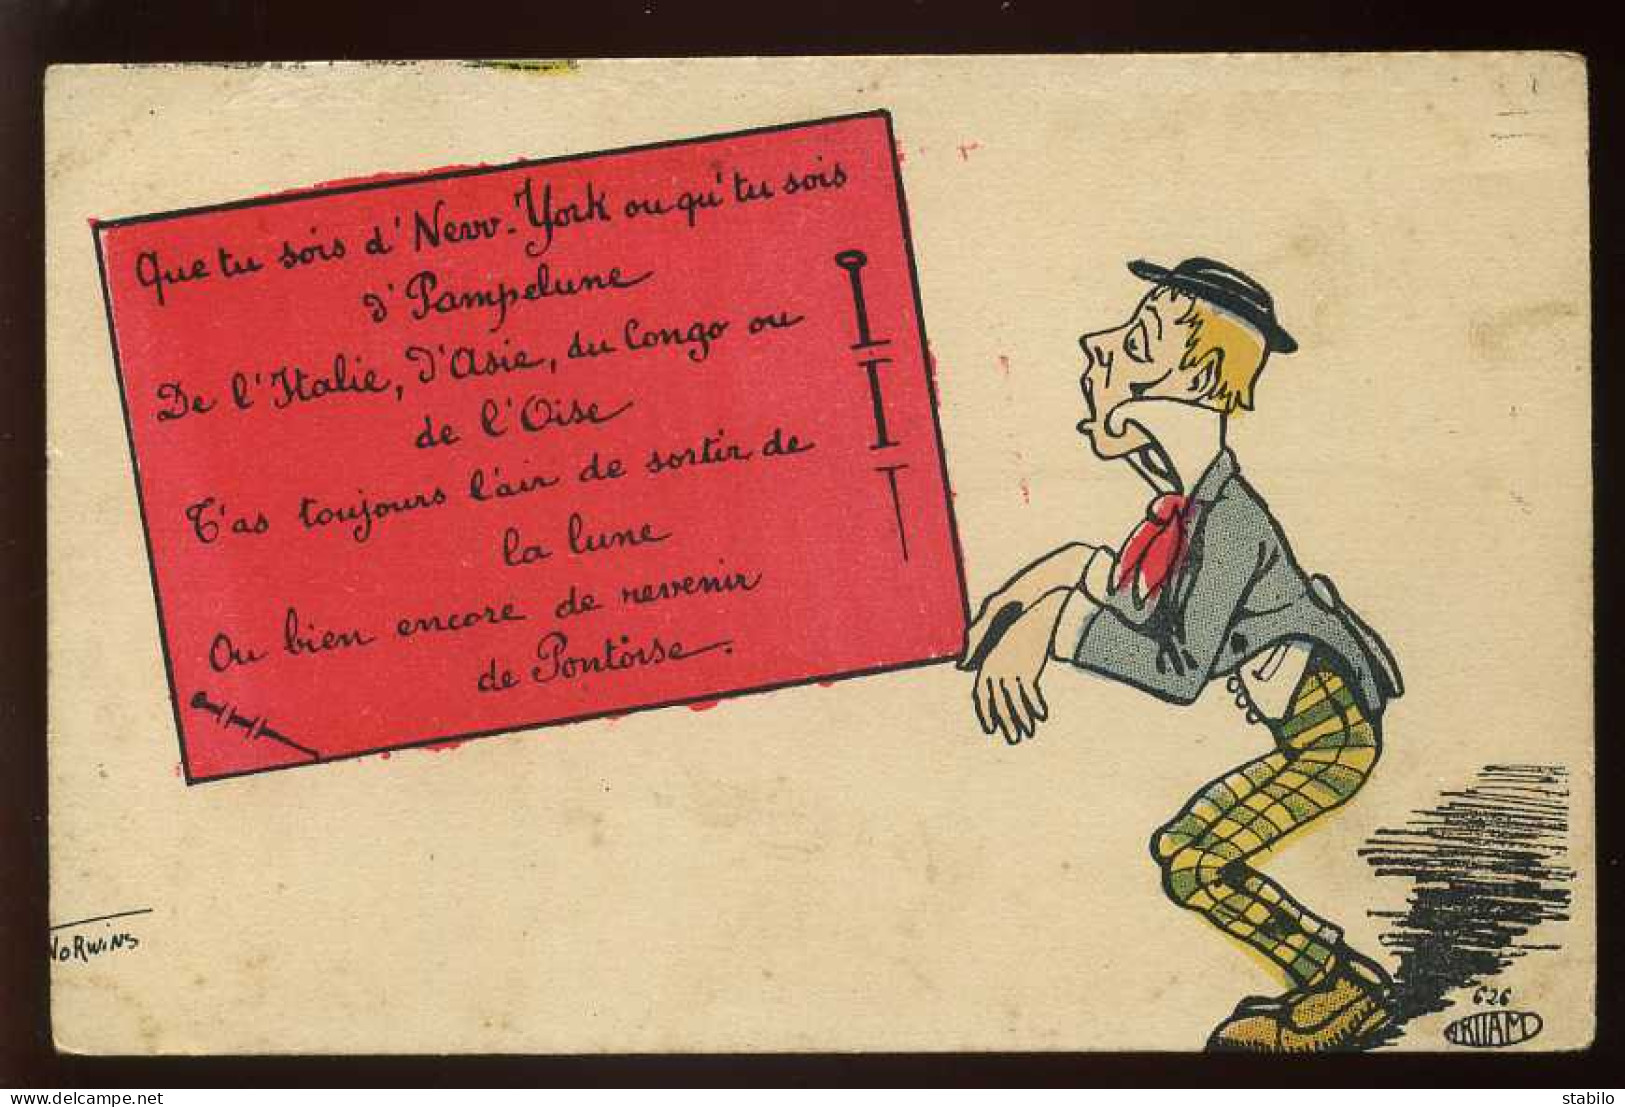 Que tu sois d'New-York ou qu'tu sois
d'Pampelune
De l'Italie, d'Asie, du Congo ou
de l'Oise
T'as toujours l'air de sortir de
la lune
Ou bien encore de revenir
de Pontoise.
NORWINS
626
ARTIAM
delcampe.net
stabilo